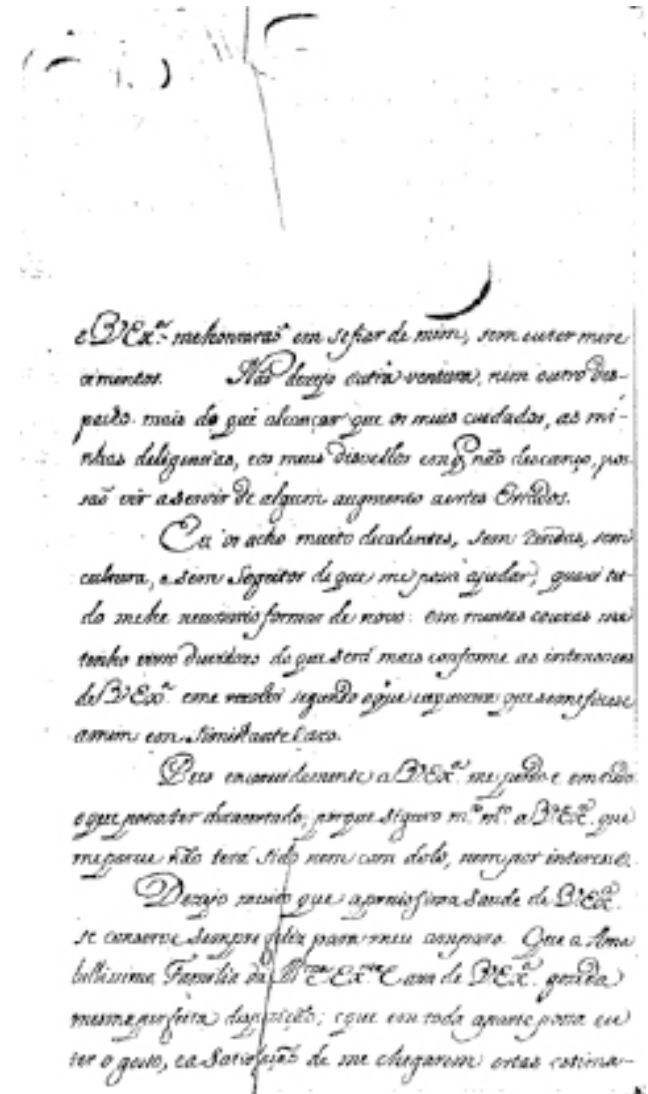 e V Ex.ª me honraraõ em se fiar de mim, sem eu ter mere
cimentos. Não dezejo outra ventura, nem outro Des-
pacho mais do que alcançar que os meus cuidados, as mi-
nhas deligencias, e os meus Disvellos em q̃ não descanço, pos-
saõ vir a servir de algum augmento a estes Estados.
Eu os acho muito decadentes, sem Rendas, sem
cultura, e sem Sogeitos de que me possa ajudar; quasi tu-
do me he necessario formar de novo: em muitas couzas me
tenho visto Duvidozo do que será mais conforme as intencoens
de V Ex.ª e me rezolvi segundo o que
assim em Similhante Cazo.
Peço encarecidamente a V Ex.ª me perdoe em tudo
o que possa ter dezacertado, porque siguro m.to m.to a V Ex.ª que
me parece não terá sido nem com dolo, nem por interesse.
Dezejo muito que a preciosissima Saude de V Ex.ª
se conserve Sempre feliz para meu amparo. Que a Ama
bellissima Familia da Ill.ma e Ex.ma Caza de V Ex.ª goze da
mesma perfeita dispozição; e que em toda a parte possa eu
ter o gosto, e a Satisfação de me chegarem estas estima-